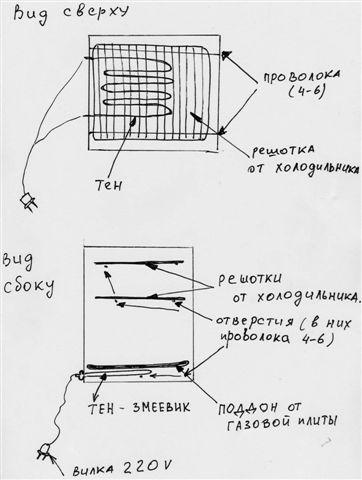 Вид сверху
проволока
(4-6)
решотка
от холодильника
ТЕН
Вид
сбоку
решотки
от холодильника.
отверстия (в них
проволока 4-6)
ТЕН - змеевик
поддон от
газовой плиты
вилка 220 V